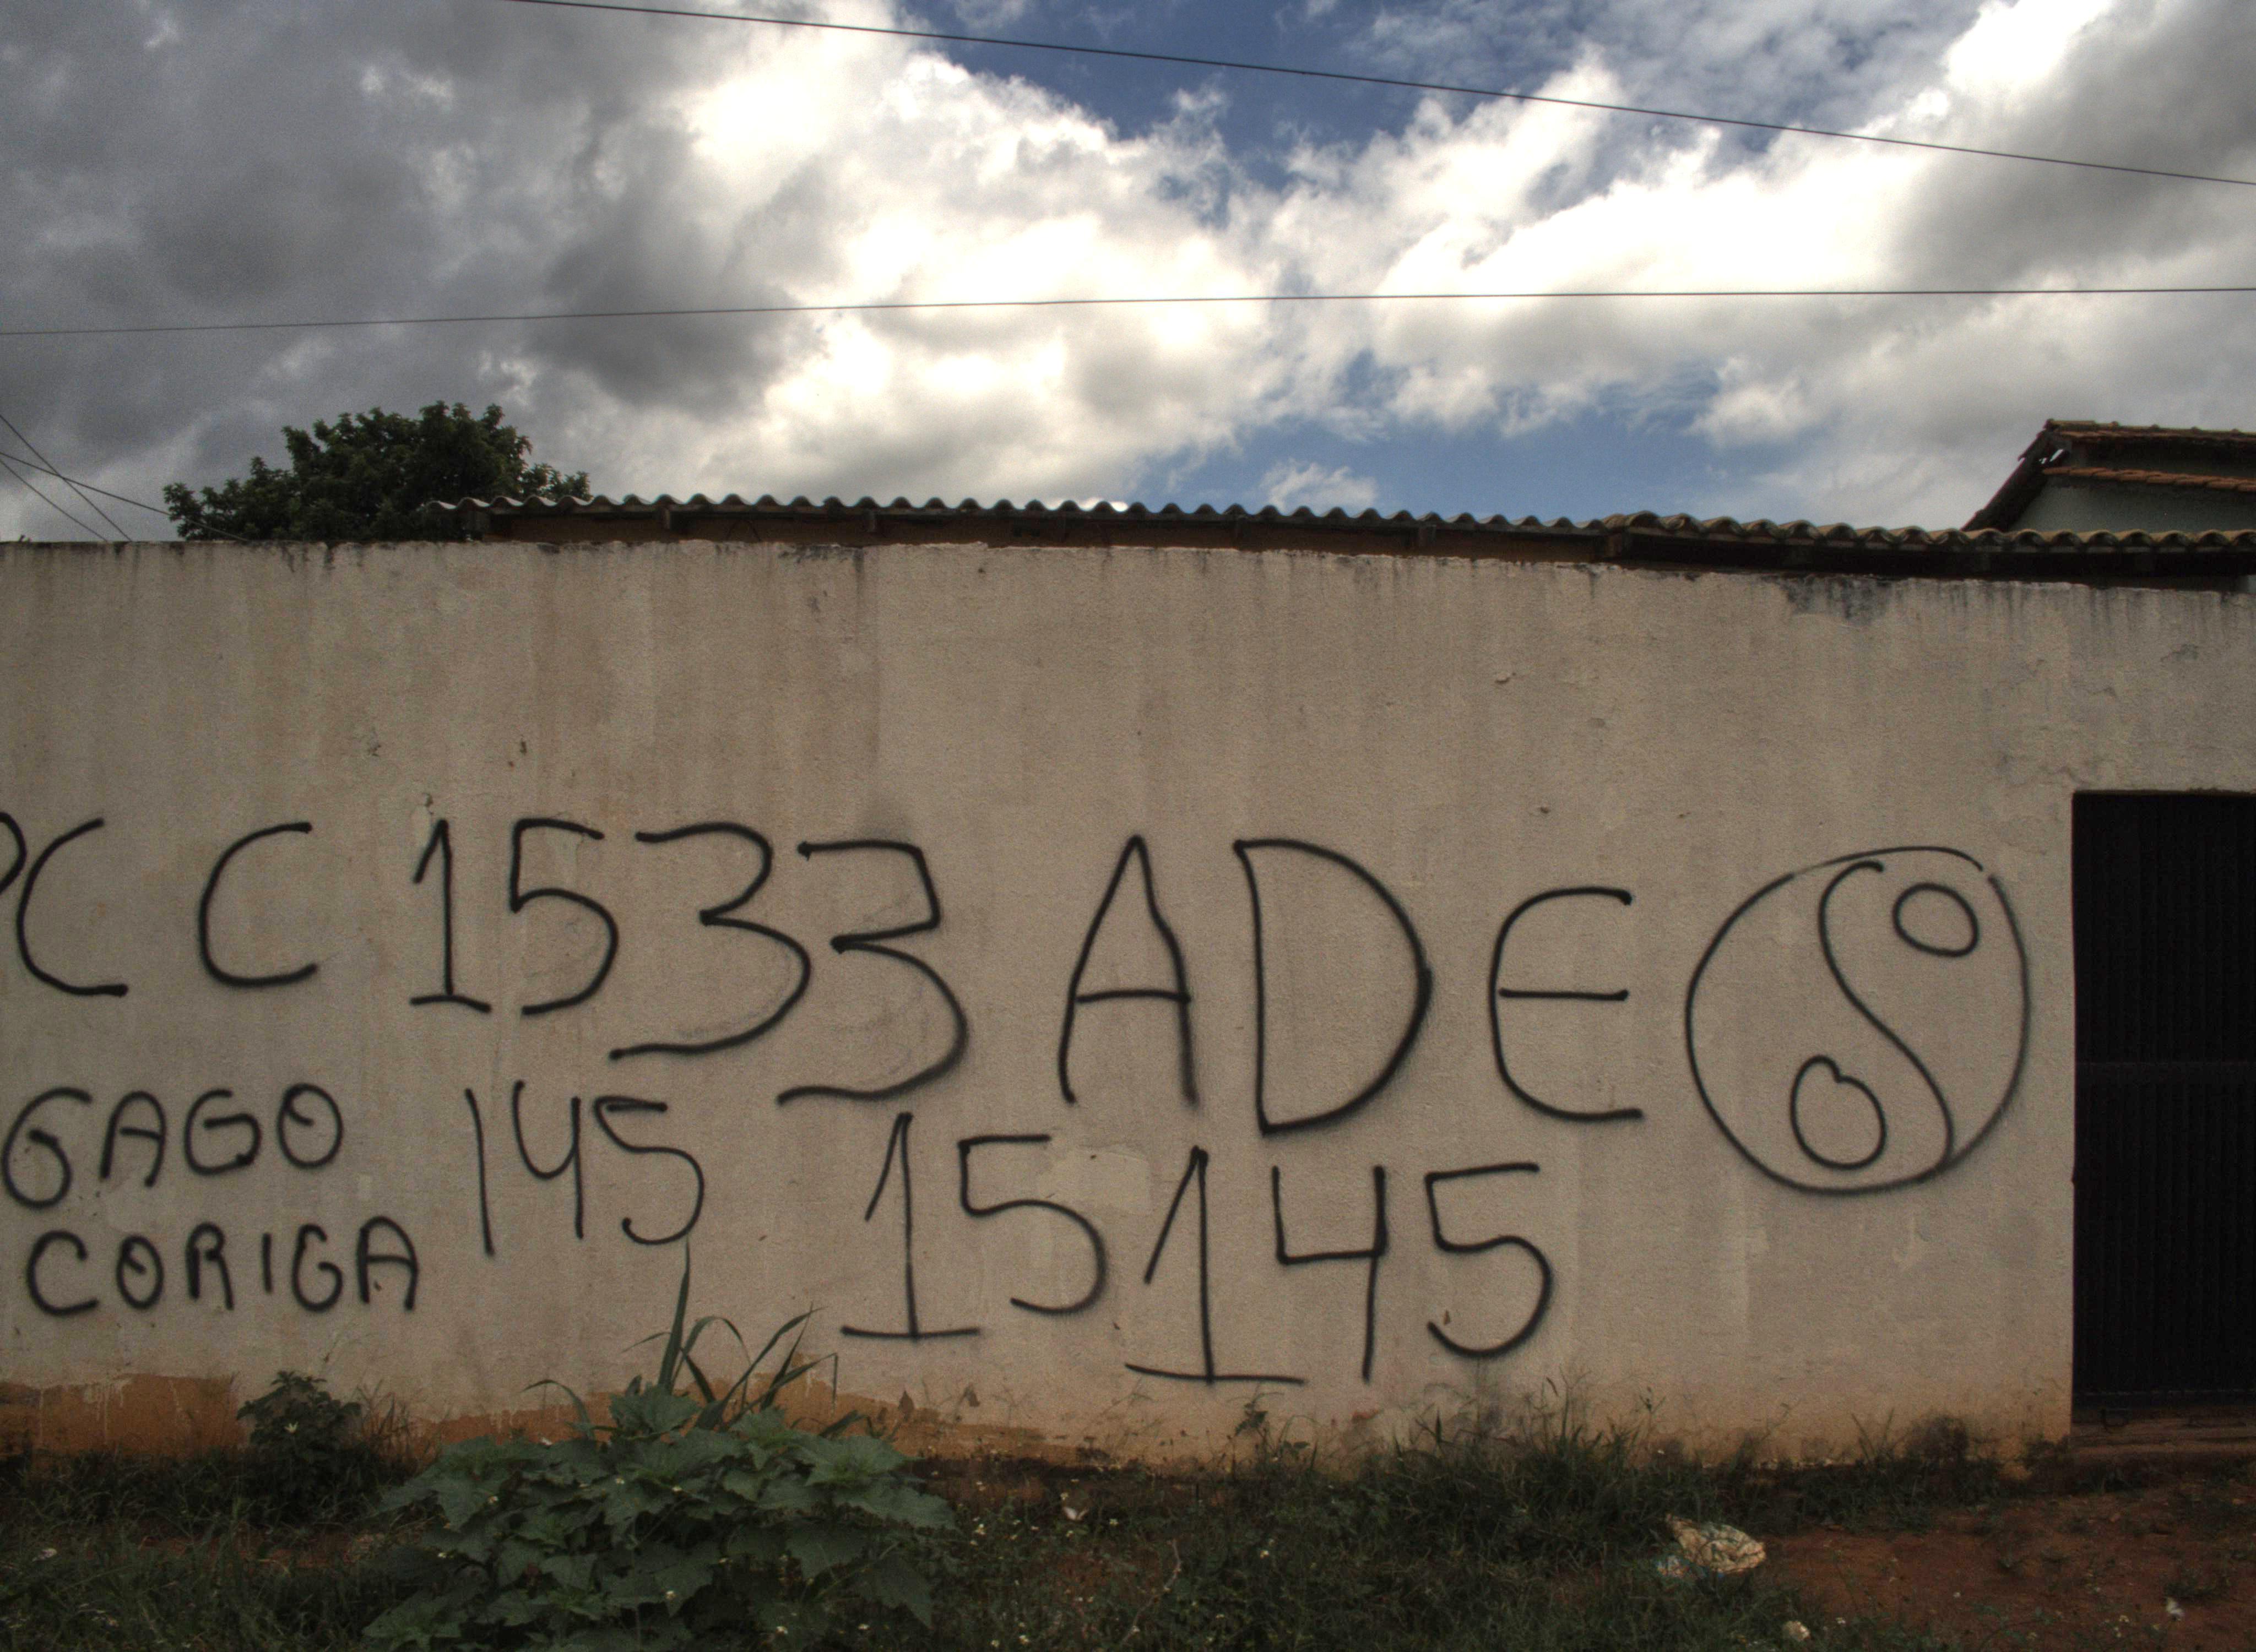 PCC 1533 ADE
GAGO 145 15145
CORIGA